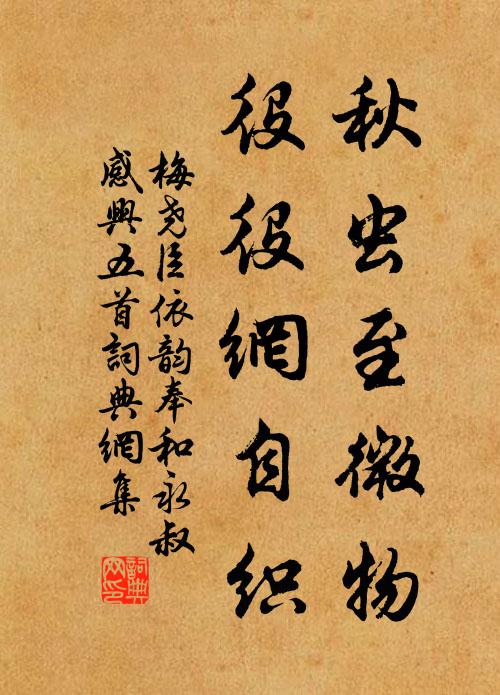 秋虫至微物
役役網自织
梅尧臣依韵奉和永叔
感興五首詞典網集
詞典
网印